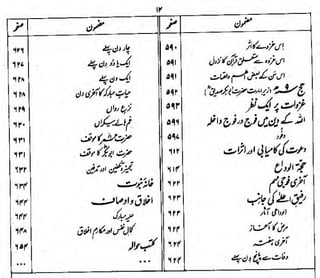 ۱۲
صفحہ مضمون
۵۹۰ اس غزوے کا اثر
۵۹۱ اس غزوہ سے متعلق قرآن کا نزول
۵۹۱ اس سن کے بعض اہم واقعات
۵۹۲ حج ۹ھ (زیر امارت حضرت ابوبکر صدیقؓ)
۵۹۳ غزوات پر ایک نظر
۵۹۶ اللہ کے دین میں فوج در فوج داخلہ
۵۹۷ وفود
۶۱۲ دعوت کی کامیابی اور اثرات
۶۱۴ حجۃ الوداع
۶۲۲ آخری فوجی مہم
۶۲۳ رفیق اعلےٰ کی جانب
۶۲۳ الوداعی آثار
۶۲۴ مرض کا آغاز
۶۲۴ آخری ہفتہ
۶۲۴ وفات سے پانچ دن پہلے
صفحہ مضمون
۶۲۶ چار دن پہلے
۶۲۷ ایک یا دو دن پہلے
۶۲۸ ایک دن پہلے
۶۲۸ حیات مبارکہ کا آخری دن
۶۳۰ نزع رواں
۶۳۰ غم ہائے بیکراں
۶۳۱ حضرت عمرؓ کا موقف
۶۳۱ حضرت ابوبکرؓ کا موقف
۶۳۲ تجہیز و تکفین اور تدفین
۶۳۴ خانۂ نبوت
۶۴۳ اخلاق و اوصاف
۶۴۳ حلیۂ مبارک
۶۴۸ کمال نفس اور مکارم اخلاق
۶۵۴ کتب حوالہ
... ...